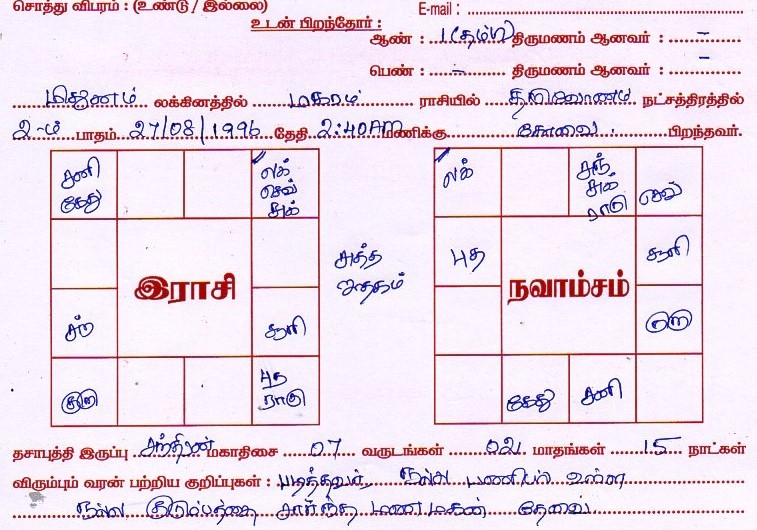 சொத்து விபரம் : (உண்டு / இல்லை) E-mail :
உடன் பிறந்தோர் :
ஆண் : 1 (தம்பி) திருமணம் ஆனவர் : –
பெண் : – திருமணம் ஆனவர் : –
மிதுனம் லக்கினத்தில் மகரம் ராசியில் திருவோணம் நட்சத்திரத்தில்
2-ம் பாதம் 27/08/1996 தேதி 2:40AM மணிக்கு கோவை பிறந்தவர்.
சனி கேது
லக் செவ் சுக்
இராசி
சந்
சூரி
குரு
புத ராகு
லக்
சந் சுக் ராகு
செவ்
புத
சூரி
நவாம்சம்
குரு
கேது
சனி
தசாபுத்தி இருப்பு சந்திரன் மகாதிசை 07 வருடங்கள் 02 மாதங்கள் 15 நாட்கள்
விரும்பும் வரன் பற்றிய குறிப்புகள் : படித்தவர், நல்ல பணியில் உள்ள
நல்ல குடும்பத்தை சார்ந்த மணமகன் தேவை